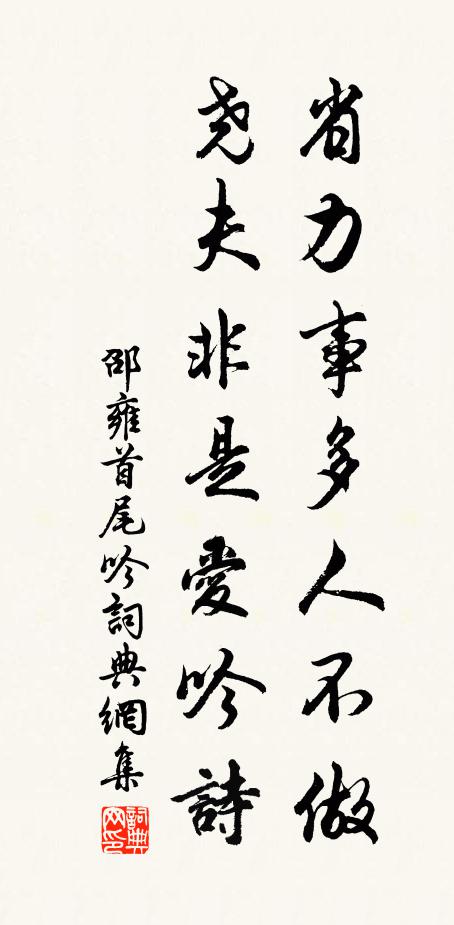 省力事多人不做
尧夫非是愛吟詩
邵雍首尾吟詞典網集
詞典
网印